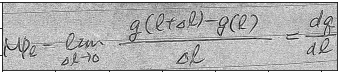 MPℓ = lim Δℓ→0 g(ℓ+Δℓ)-g(ℓ) / Δℓ = dg / dℓ